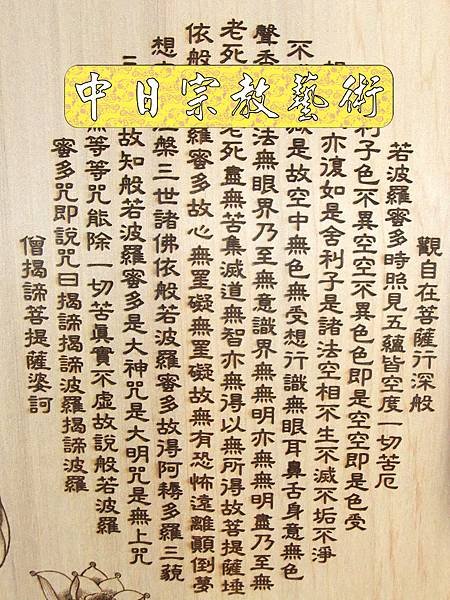 中日宗教藝術
觀自在菩薩行深般
若波羅蜜多時照見五蘊皆空度一切苦厄
利子色不異空空不異色色即是空空即是色受
亦復如是舍利子是諸法空相不生不滅不垢不淨
不減是故空中無色無受想行識無眼耳鼻舌身意無色
聲香法無眼界乃至無意識界無無明亦無無明盡乃至無
老死老死盡無苦集滅道無智亦無得以無所得故菩提薩埵
依般羅蜜多故心無罣礙無罣礙故無有恐怖遠離顛倒夢
想涅槃三世諸佛依般若波羅蜜多故得阿耨多羅三藐
三故知般若波羅蜜多是大神咒是大明咒是無上咒
無等等咒能除一切苦真實不虛故說般若波羅
蜜多咒即說咒曰揭諦揭諦波羅揭諦波羅
僧揭諦菩提薩婆訶